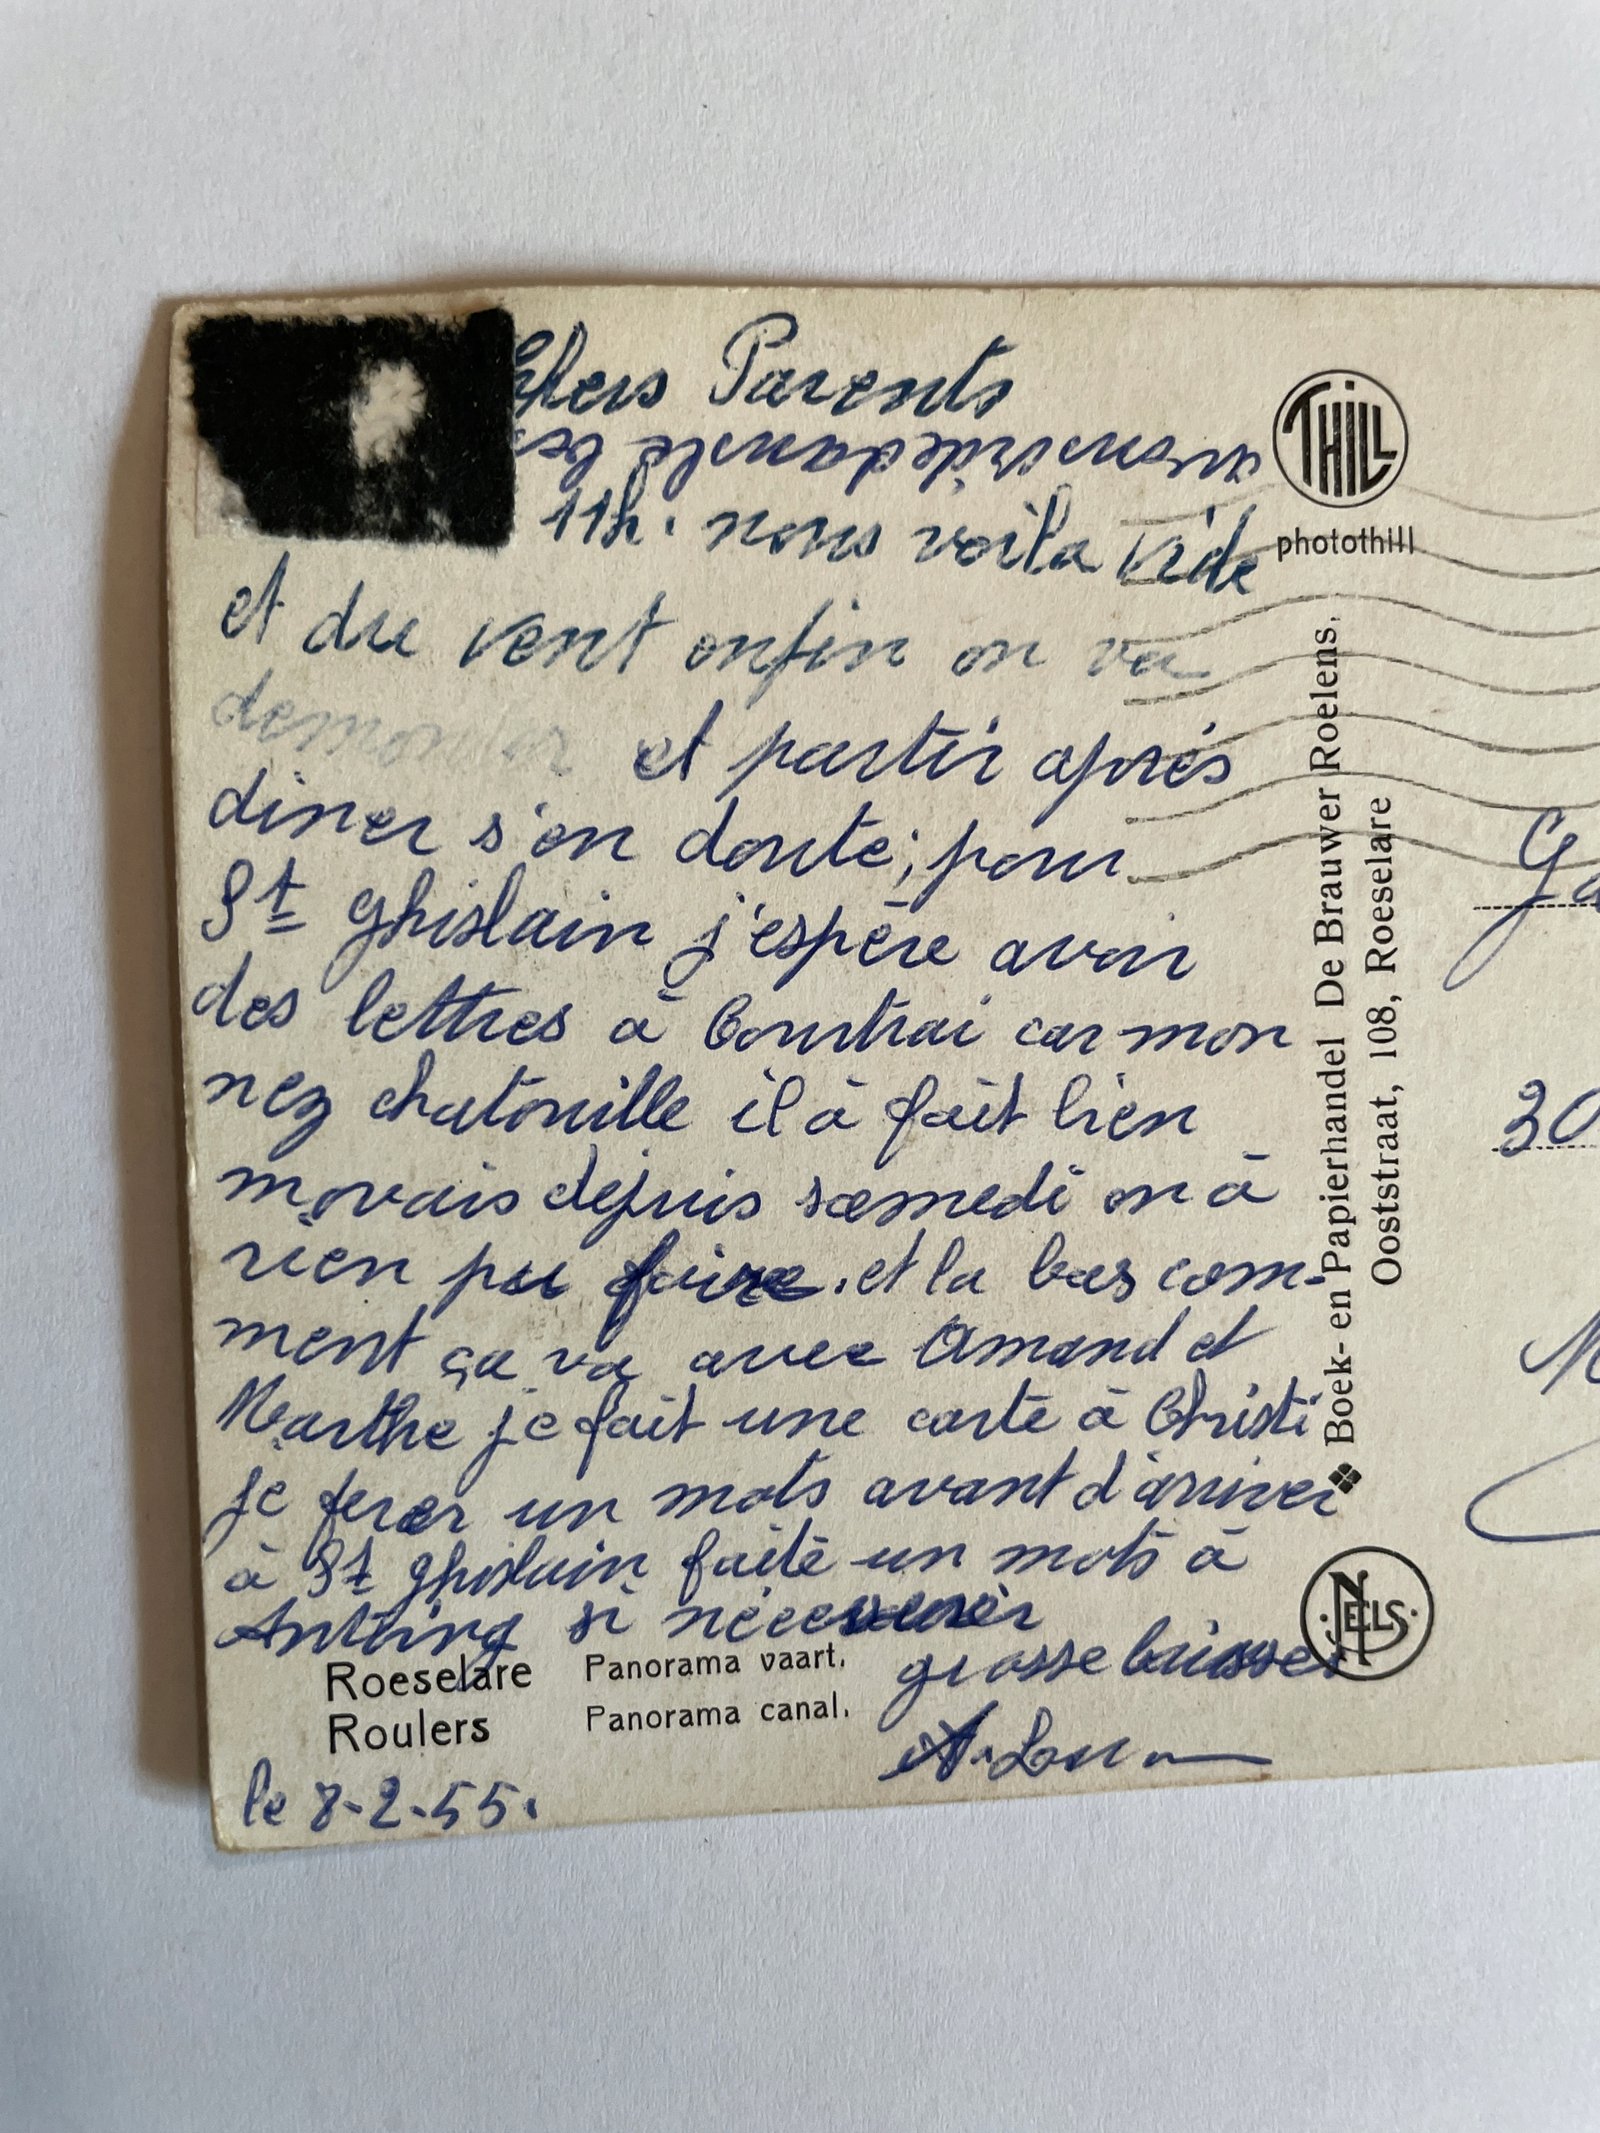 Chers Parents
11h. nous voila vide
et du vent enfin on va
demonter et partir aprés
diner s'en doute; pour
St Ghislain j'espère avoir
des lettres à Courtrai car mon
nez chatouille il à fait bien
movais depuis samedi on à
rien pu faire. et la bas com-
ment ça va avec Amand et
Marthe je fait une carte à Christi
je ferer un mots avant d'arriver
à St Ghislain faite un mots à
si
grosse baisses
le 8-2-55.
Roeselare Panorama vaart.
Roulers Panorama canal.
THILL
photothill
Boek- en Papierhandel De Brauwer Roelens.
Ooststraat, 108, Roeselare
NELS
30
M